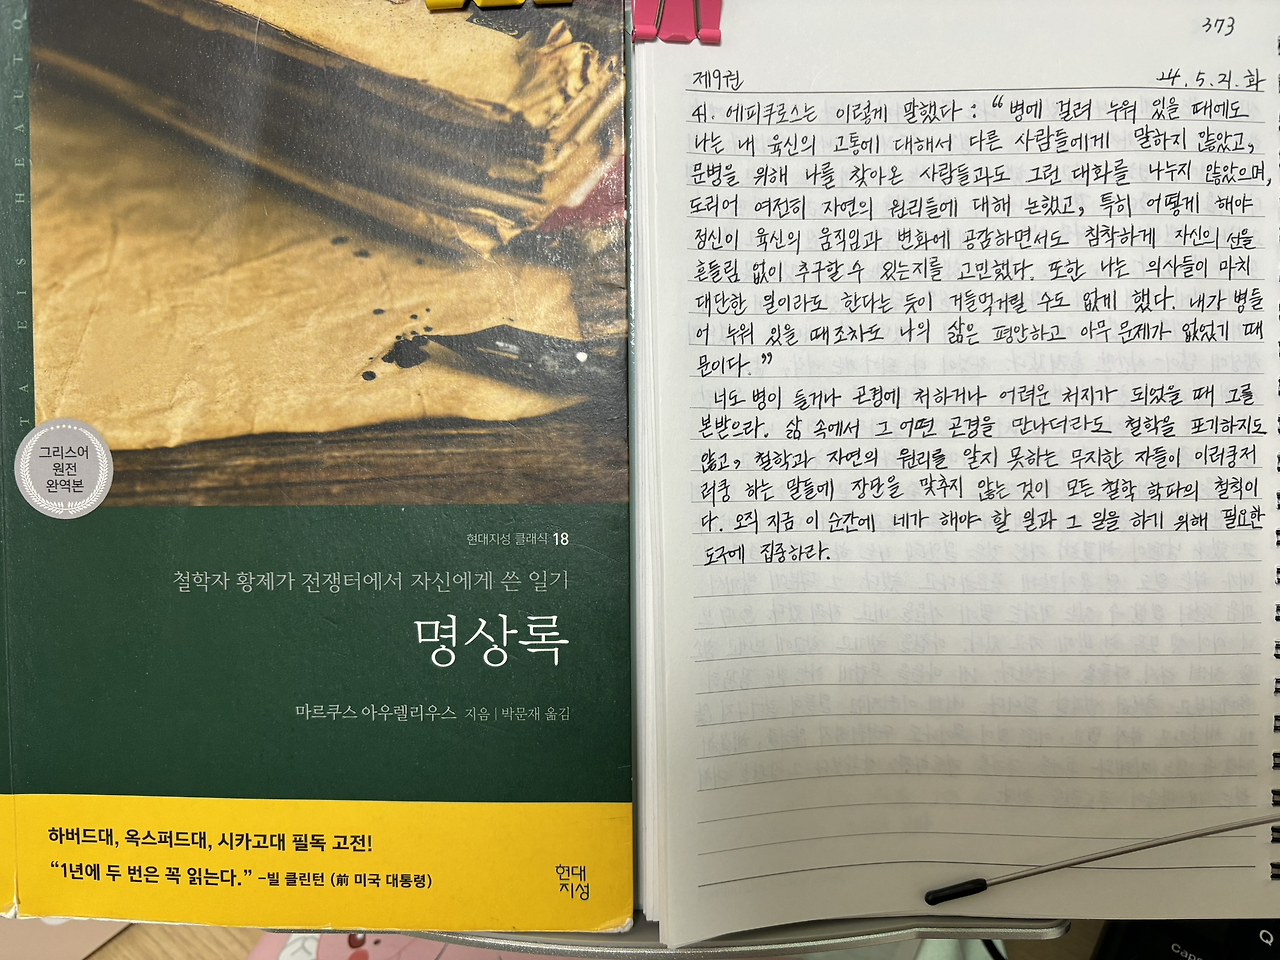 TA EIS HEAUTO
그리스어
원전
완역본
현대지성 클래식 18
철학자 황제가 전쟁터에서 자신에게 쓴 일기
명상록
마르쿠스 아우렐리우스 지음 | 박문재 옮김
하버드대, 옥스퍼드대, 시카고대 필독 고전!
“1년에 두 번은 꼭 읽는다.” –빌 클린턴 (前 미국 대통령)
현대
지성
373
제9권 24.5.21.화
41. 에피쿠로스는 이렇게 말했다 : “병에 걸려 누워 있을 때에도
나는 내 육신의 고통에 대해서 다른 사람들에게 말하지 않았고,
문병을 위해 나를 찾아온 사람들과도 그런 대화를 나누지 않았으며,
도리어 여전히 자연의 원리들에 대해 논했고, 특히 어떻게 해야
정신이 육신의 움직임과 변화에 공감하면서도 침착하게 자신의 선을
흔들림 없이 추구할 수 있는지를 고민했다. 또한 나는 의사들이 마치
대단한 일이라도 한다는 듯이 거들먹거릴 수도 없게 했다. 내가 병들
어 누워 있을 때조차도 나의 삶은 평안하고 아무 문제가 없었기 때
문이다.”
너도 병이 들거나 곤경에 처하거나 어려운 처지가 되었을 때 그를
본받으라. 삶 속에서 그 어떤 곤경을 만나더라도 철학을 포기하지도
않고, 철학과 자연의 원리를 알지 못하는 무지한 자들이 이러쿵저
러쿵 하는 말들에 장단을 맞추지 않는 것이 모든 철학 학파의 철칙이
다. 오직 지금 이 순간에 네가 해야 할 일과 그 일을 하기 위해 필요한
도구에 집중하라.
Caps
Q